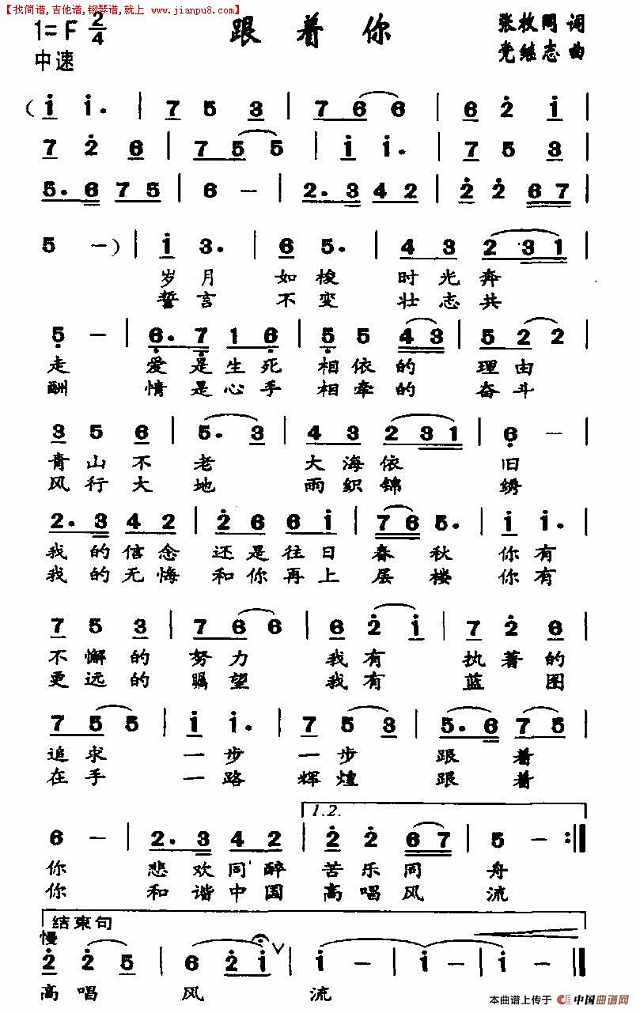 【找简谱,吉他谱,钢琴谱,就上 www.jianpu8.com】
1=F 2/4 跟着你 张枚同 词
中速 党继志 曲
(i i. | 7 5 3 | 7 6 6 | 6 2 i |
7 2 6 | 7 5 5 | i i. | 7 5 3 |
5. 6 7 5 | 6 - | 2. 3 4 2 | 2 2 6 7 |
5 - ) | i 3. | 6 5. | 4 3 2 3 1 |
岁月 如梭 时光奔
誓言 不变 壮志共
5 - | 6. 7 1 6 | 5 5 4 3 | 5 2 2 |
走 爱是生死 相依的 理由
酬 情是心手 相牵的 奋斗
3 5 6 | 5. 3 | 4 3 2 3 1 | 6 - |
青山不 老 大海依 旧
风行大 地 雨织锦 绣
2. 3 4 2 | 2 6 6 i | 7 6 5. | i i. |
我的信念 还是往日 春秋 你有
我的无悔 和你再上 层楼 你有
7 5 3 | 7 6 6 | 6 2 i | 7 2 6 |
不懈的 努力 我有 执著的
更远的 瞩望 我有 蓝图
7 5 5 | i i. | 7 5 3 | 5. 6 7 5 |
追求 一步 一步 跟着
在手 一路 辉煌 跟着
1.2.
6 - | 2. 3 4 2 | 2 2 6 7 | 5 - :||
你 悲欢同醉 苦乐同 舟
你 和谐中国 高唱风 流
结束句
慢
2 2 5 | 6 2 i ∨ | i - | i - ||
高唱 风 流
本曲谱上传于 中国曲谱网